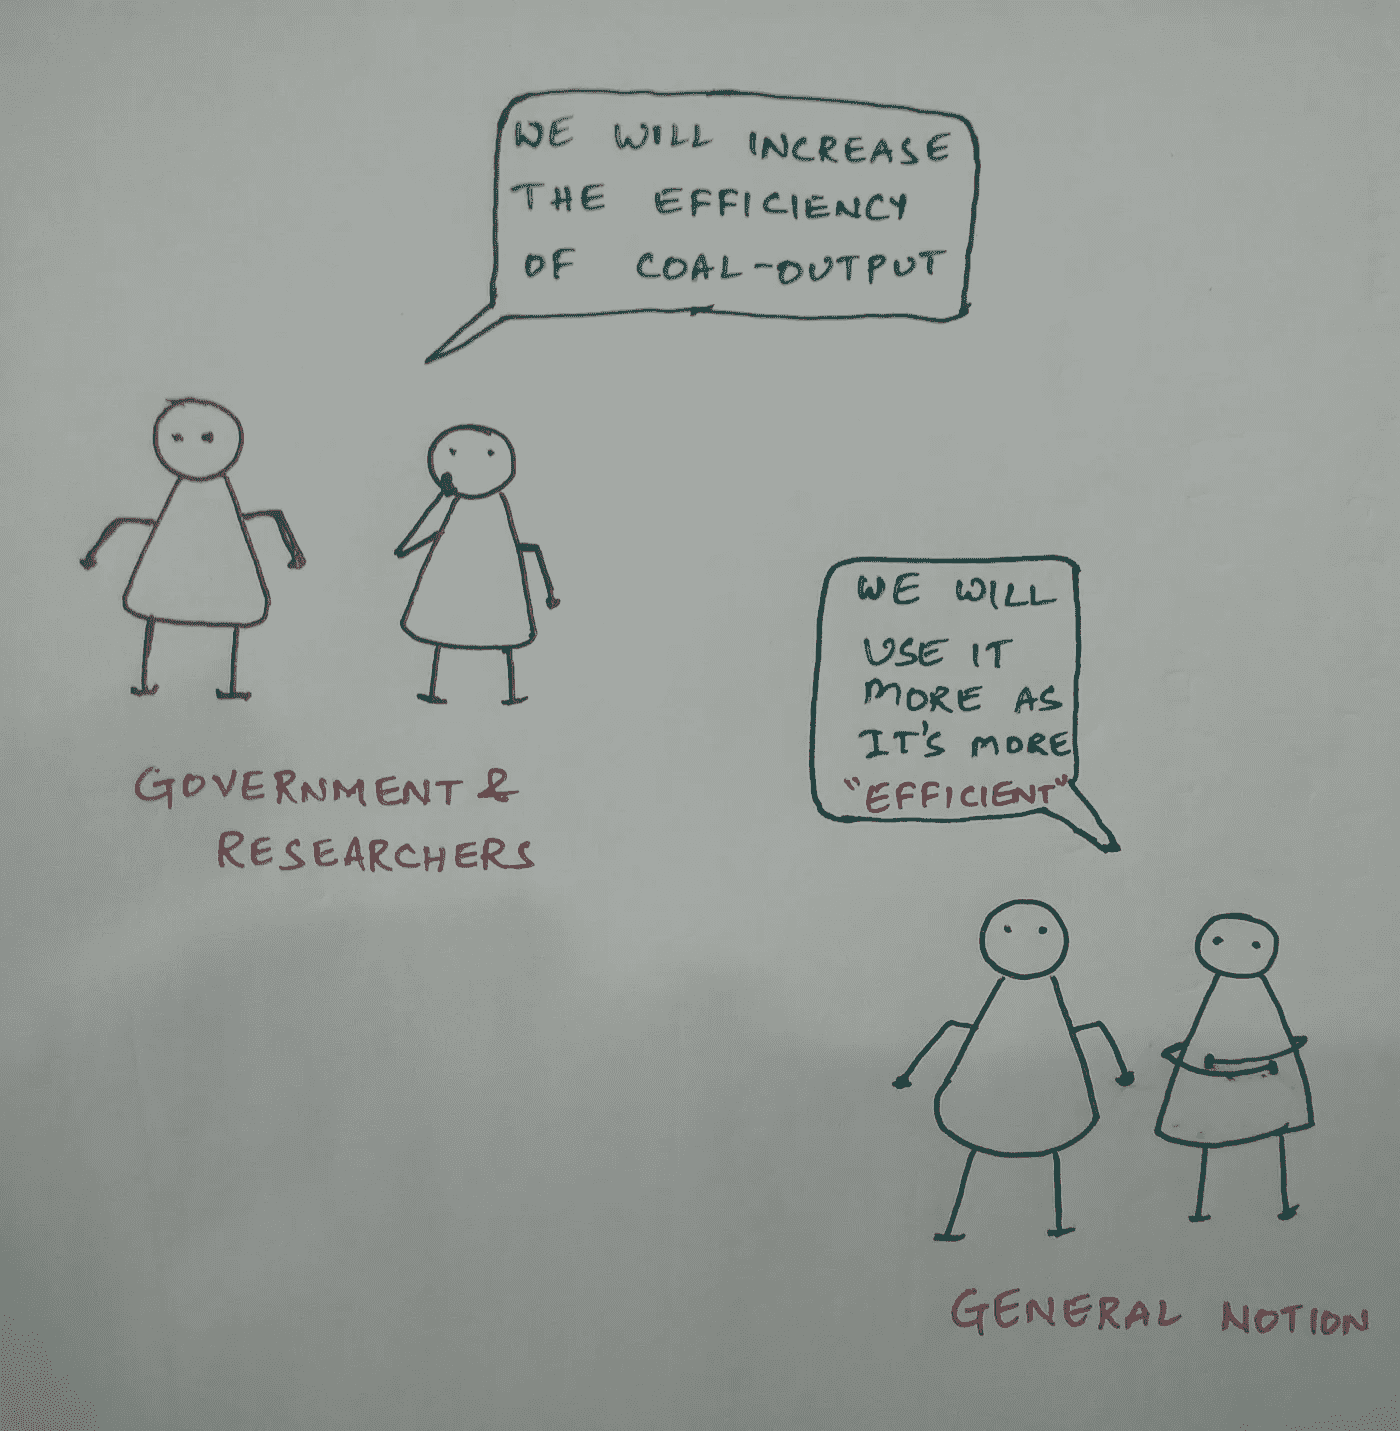 WE WILL INCREASE
THE EFFICIENCY
OF COAL-OUTPUT
GOVERNMENT &
RESEARCHERS
WE WILL
USE IT
MORE AS
IT'S MORE
"EFFICIENT"
GENERAL NOTION